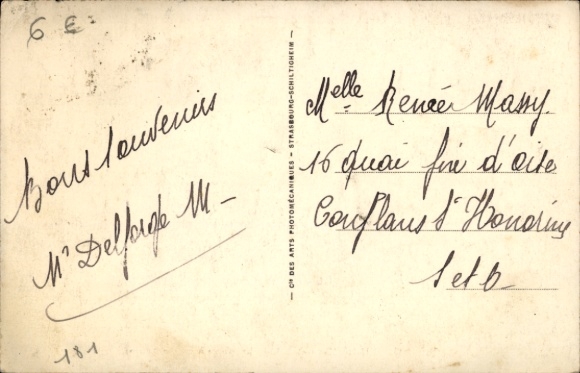 6 €
Bons Souvenirs
Mr Delforge M -
181
Cie DES ARTS PHOTOMÉCANIQUES - STRASBOURG-SCHILTIGHEIM -
Melle Renée Massy.
16 Quai fin d'oise
Conflans Ste Honorine
S et O-